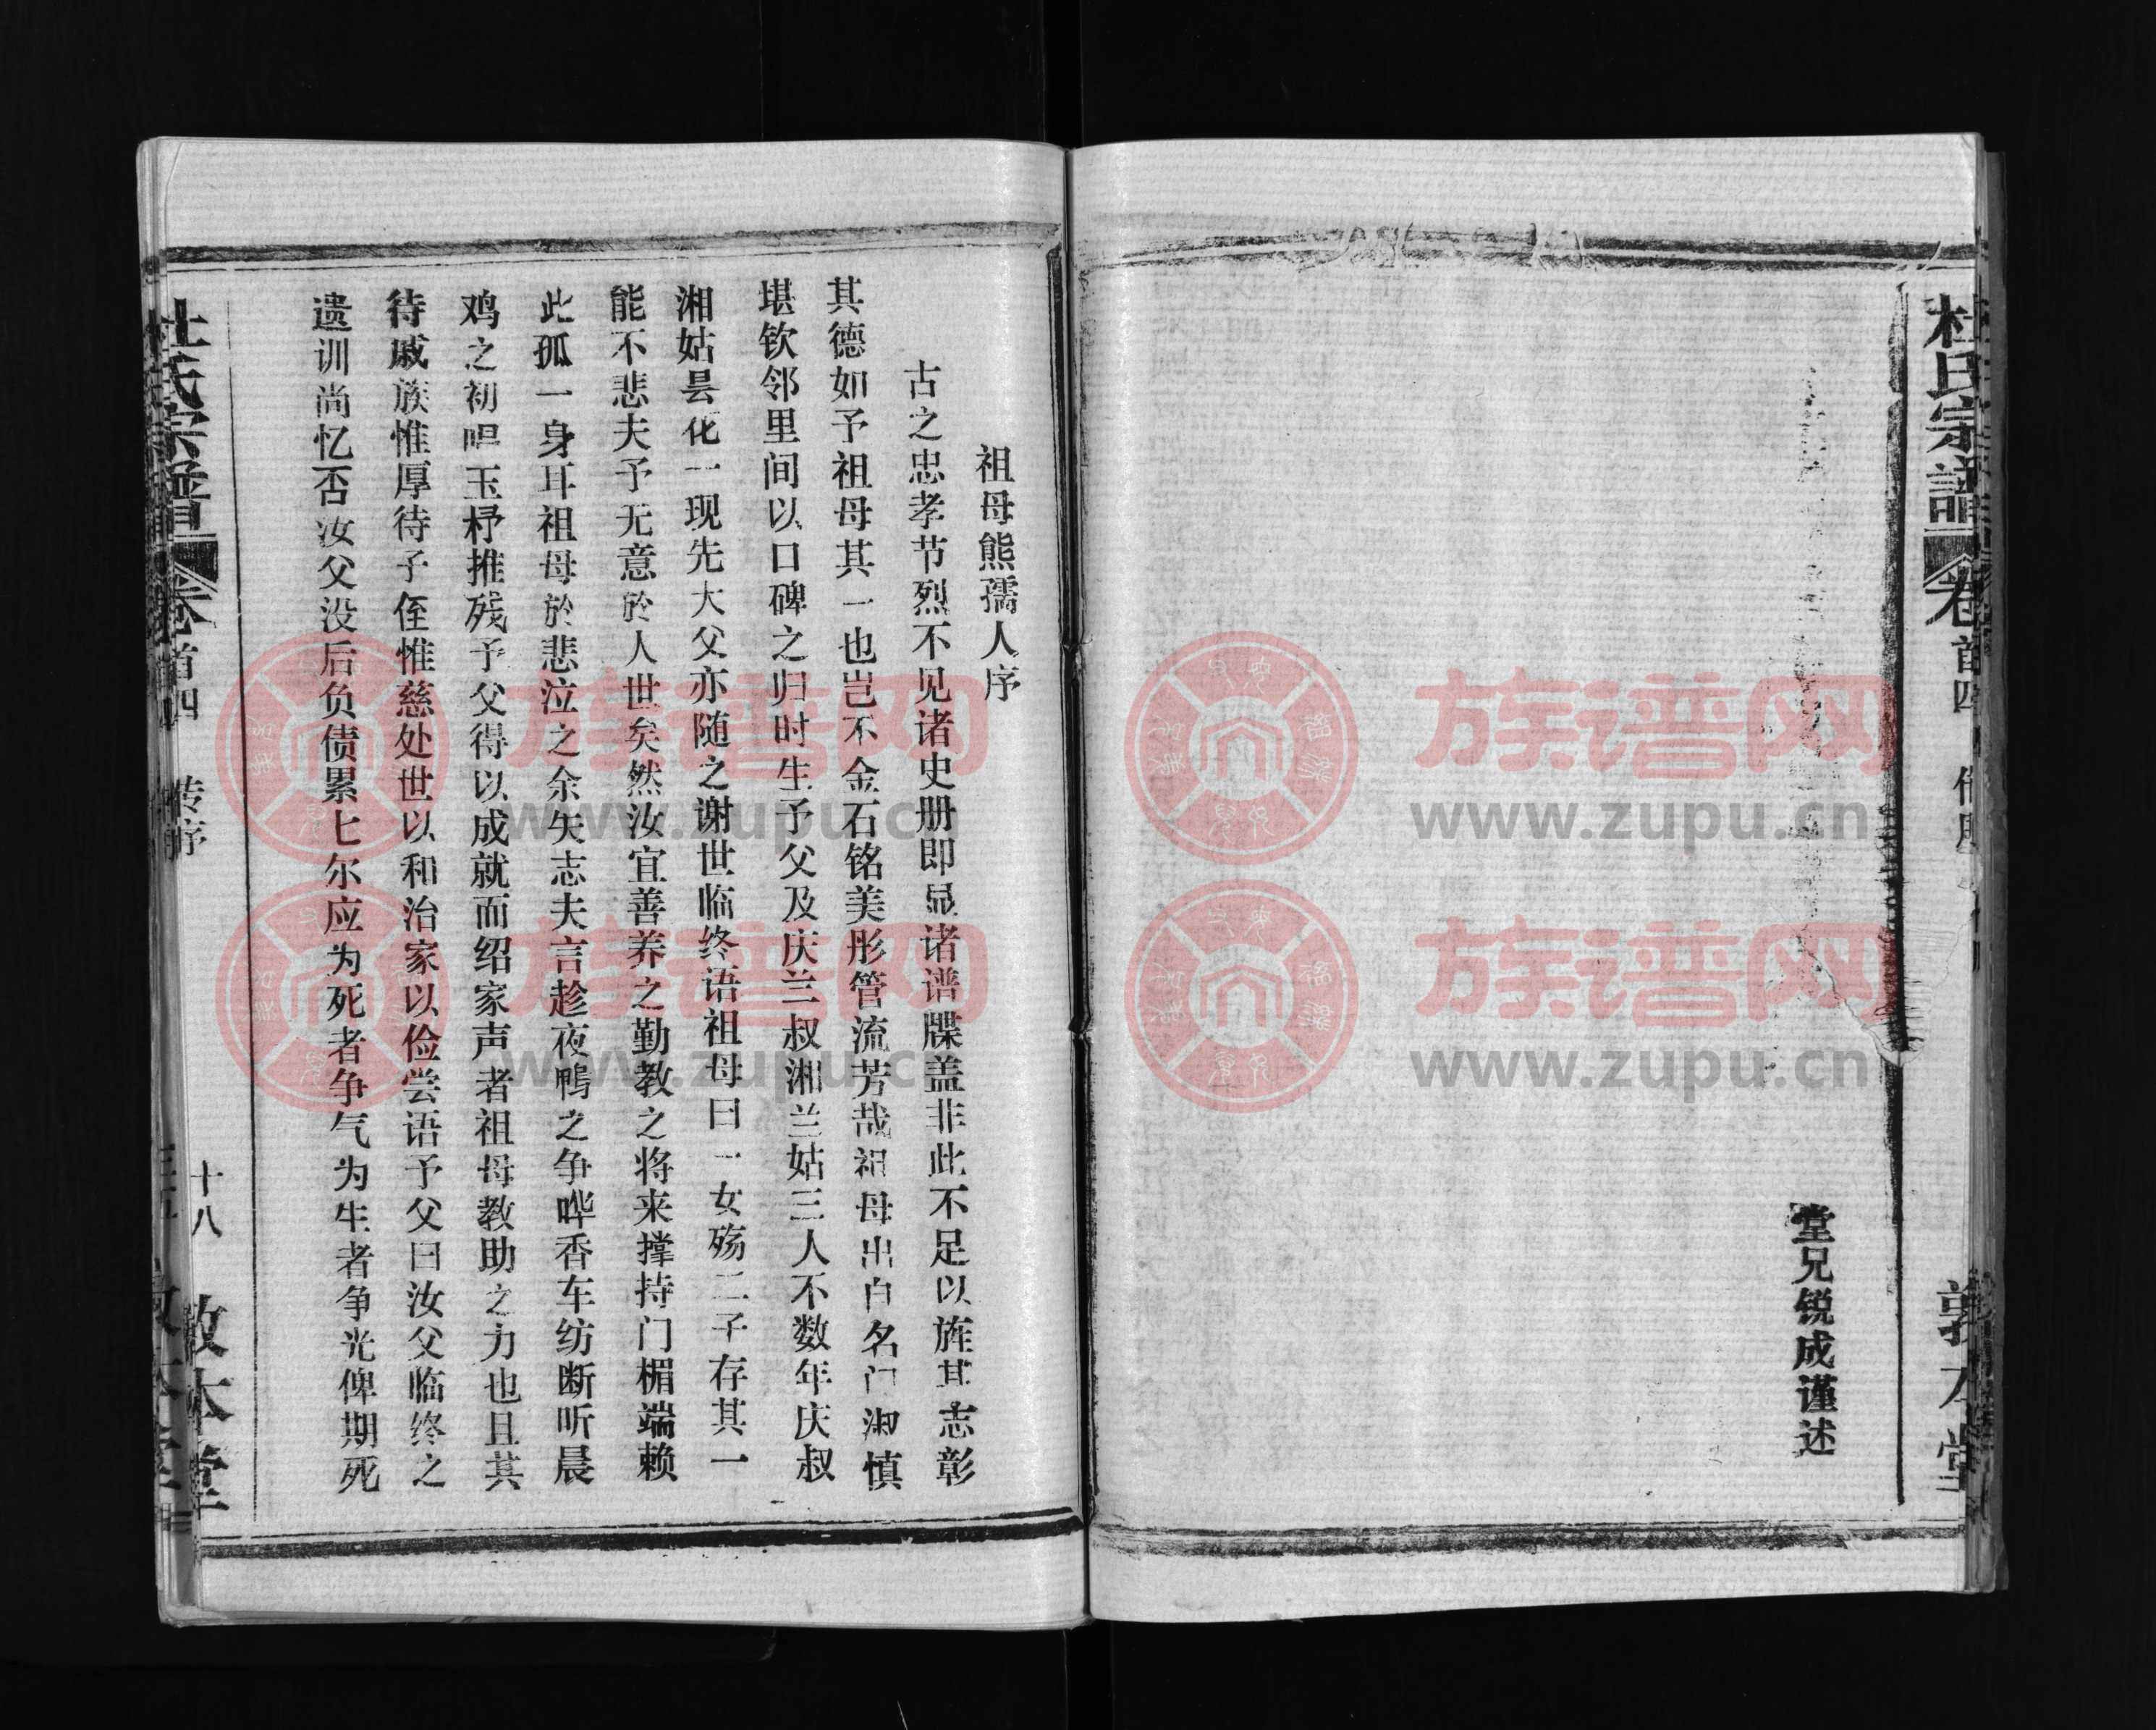 杜氏宗譜
卷首四
敦本堂
堂兄锐成谨述
祖母熊孺人序
古之忠孝节烈不见诸史册即显诸谱牒盖非此不足以旌其志彰
其德如予祖母其一也岂不金石铭美彤管流芳哉祖母出自名门淑慎
堪钦邻里间以口碑之归时生予父及庆兰叔湘兰姑三人不数年庆叔
湘姑昙花一现先大父亦随之谢世临终语祖母曰一女殇二子存其一
能不悲夫予无意於人世矣然汝宜善养之勤教之将来撑持门楣端赖
此孤一身耳祖母於悲泣之余矢志夫言趁夜鸭之争哗香车纺断听晨
鸡之初唱玉杼推残予父得以成就而绍家声者祖母教助之力也且其
待戚族惟厚待子侄惟慈处世以和治家以俭尝语予父曰汝父临终之
遗训尚忆否汝父没后负债累七尔应为死者争气为生者争光俾期死
杜氏宗譜
卷首四
传序
十八
敦本堂
族谱网
www.zupu.cn
族谱网
www.zupu.cn
族谱网
www.zupu.cn
族谱网
www.zupu.cn